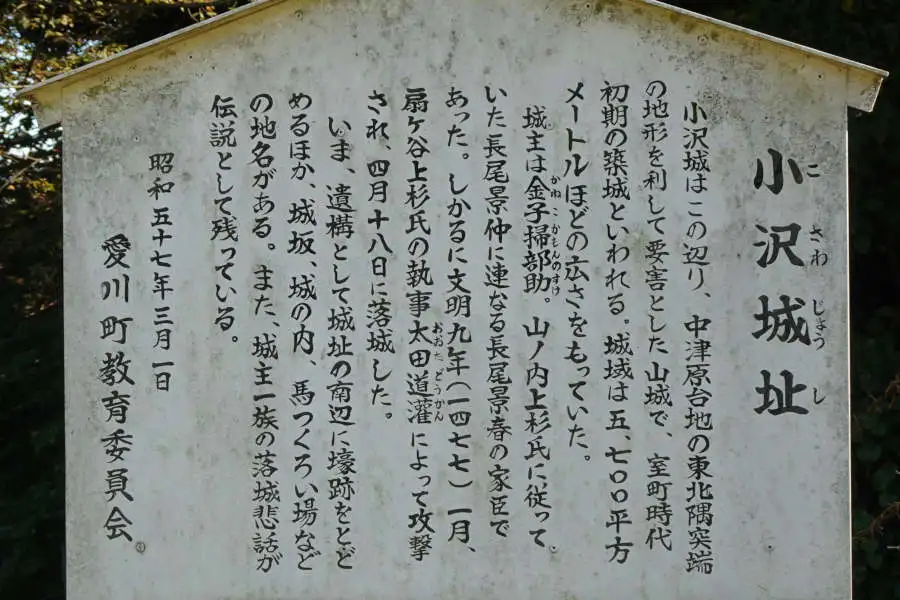 小沢城址
こさわじょうし
小沢城はこの辺り、中津原台地の東北隅突端
の地形を利して要害とした山城で、室町時代
初期の築城といわれる。城域は五、七〇〇平方
メートルほどの広さをもっていた。
城主は金子掃部助。山ノ内上杉氏に従って
かねこかもんのすけ
いた長尾景仲に連なる長尾景春の家臣で
あった。しかるに文明九年(一四七七)一月、
扇ケ谷上杉氏の執事太田道灌によって攻撃
おおたどうかん
され、四月十八日に落城した。
いま、遺構として城址の南辺に壕跡をとど
めるほか、城坂、城の内、馬つくろい場など
の地名がある。また、城主一族の落城悲話が
伝説として残っている。
昭和五十七年三月一日
愛川町教育委員会